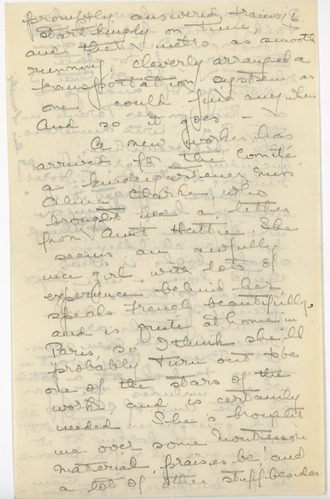 promptly answered, trains
startlingly on time,
and the metro as smooth
running cleverly arranged a
transportation system as
one could find anywhere
And so it goes —
A new worker has
arrived for the comité,
a kindergartener Miss
Clarke, who
brought me a letter
from Aunt Hattie. She
seems an awfully
nice girl, with lots of
experience behind her
speaks french beautifully
and is quite at home in
Paris, so I think she'll
probably turn out to be
one of the stars of the
work and is certainly
needed. She's brought
me over some Montessori
material, praises be, and
a lot of other stuff besides